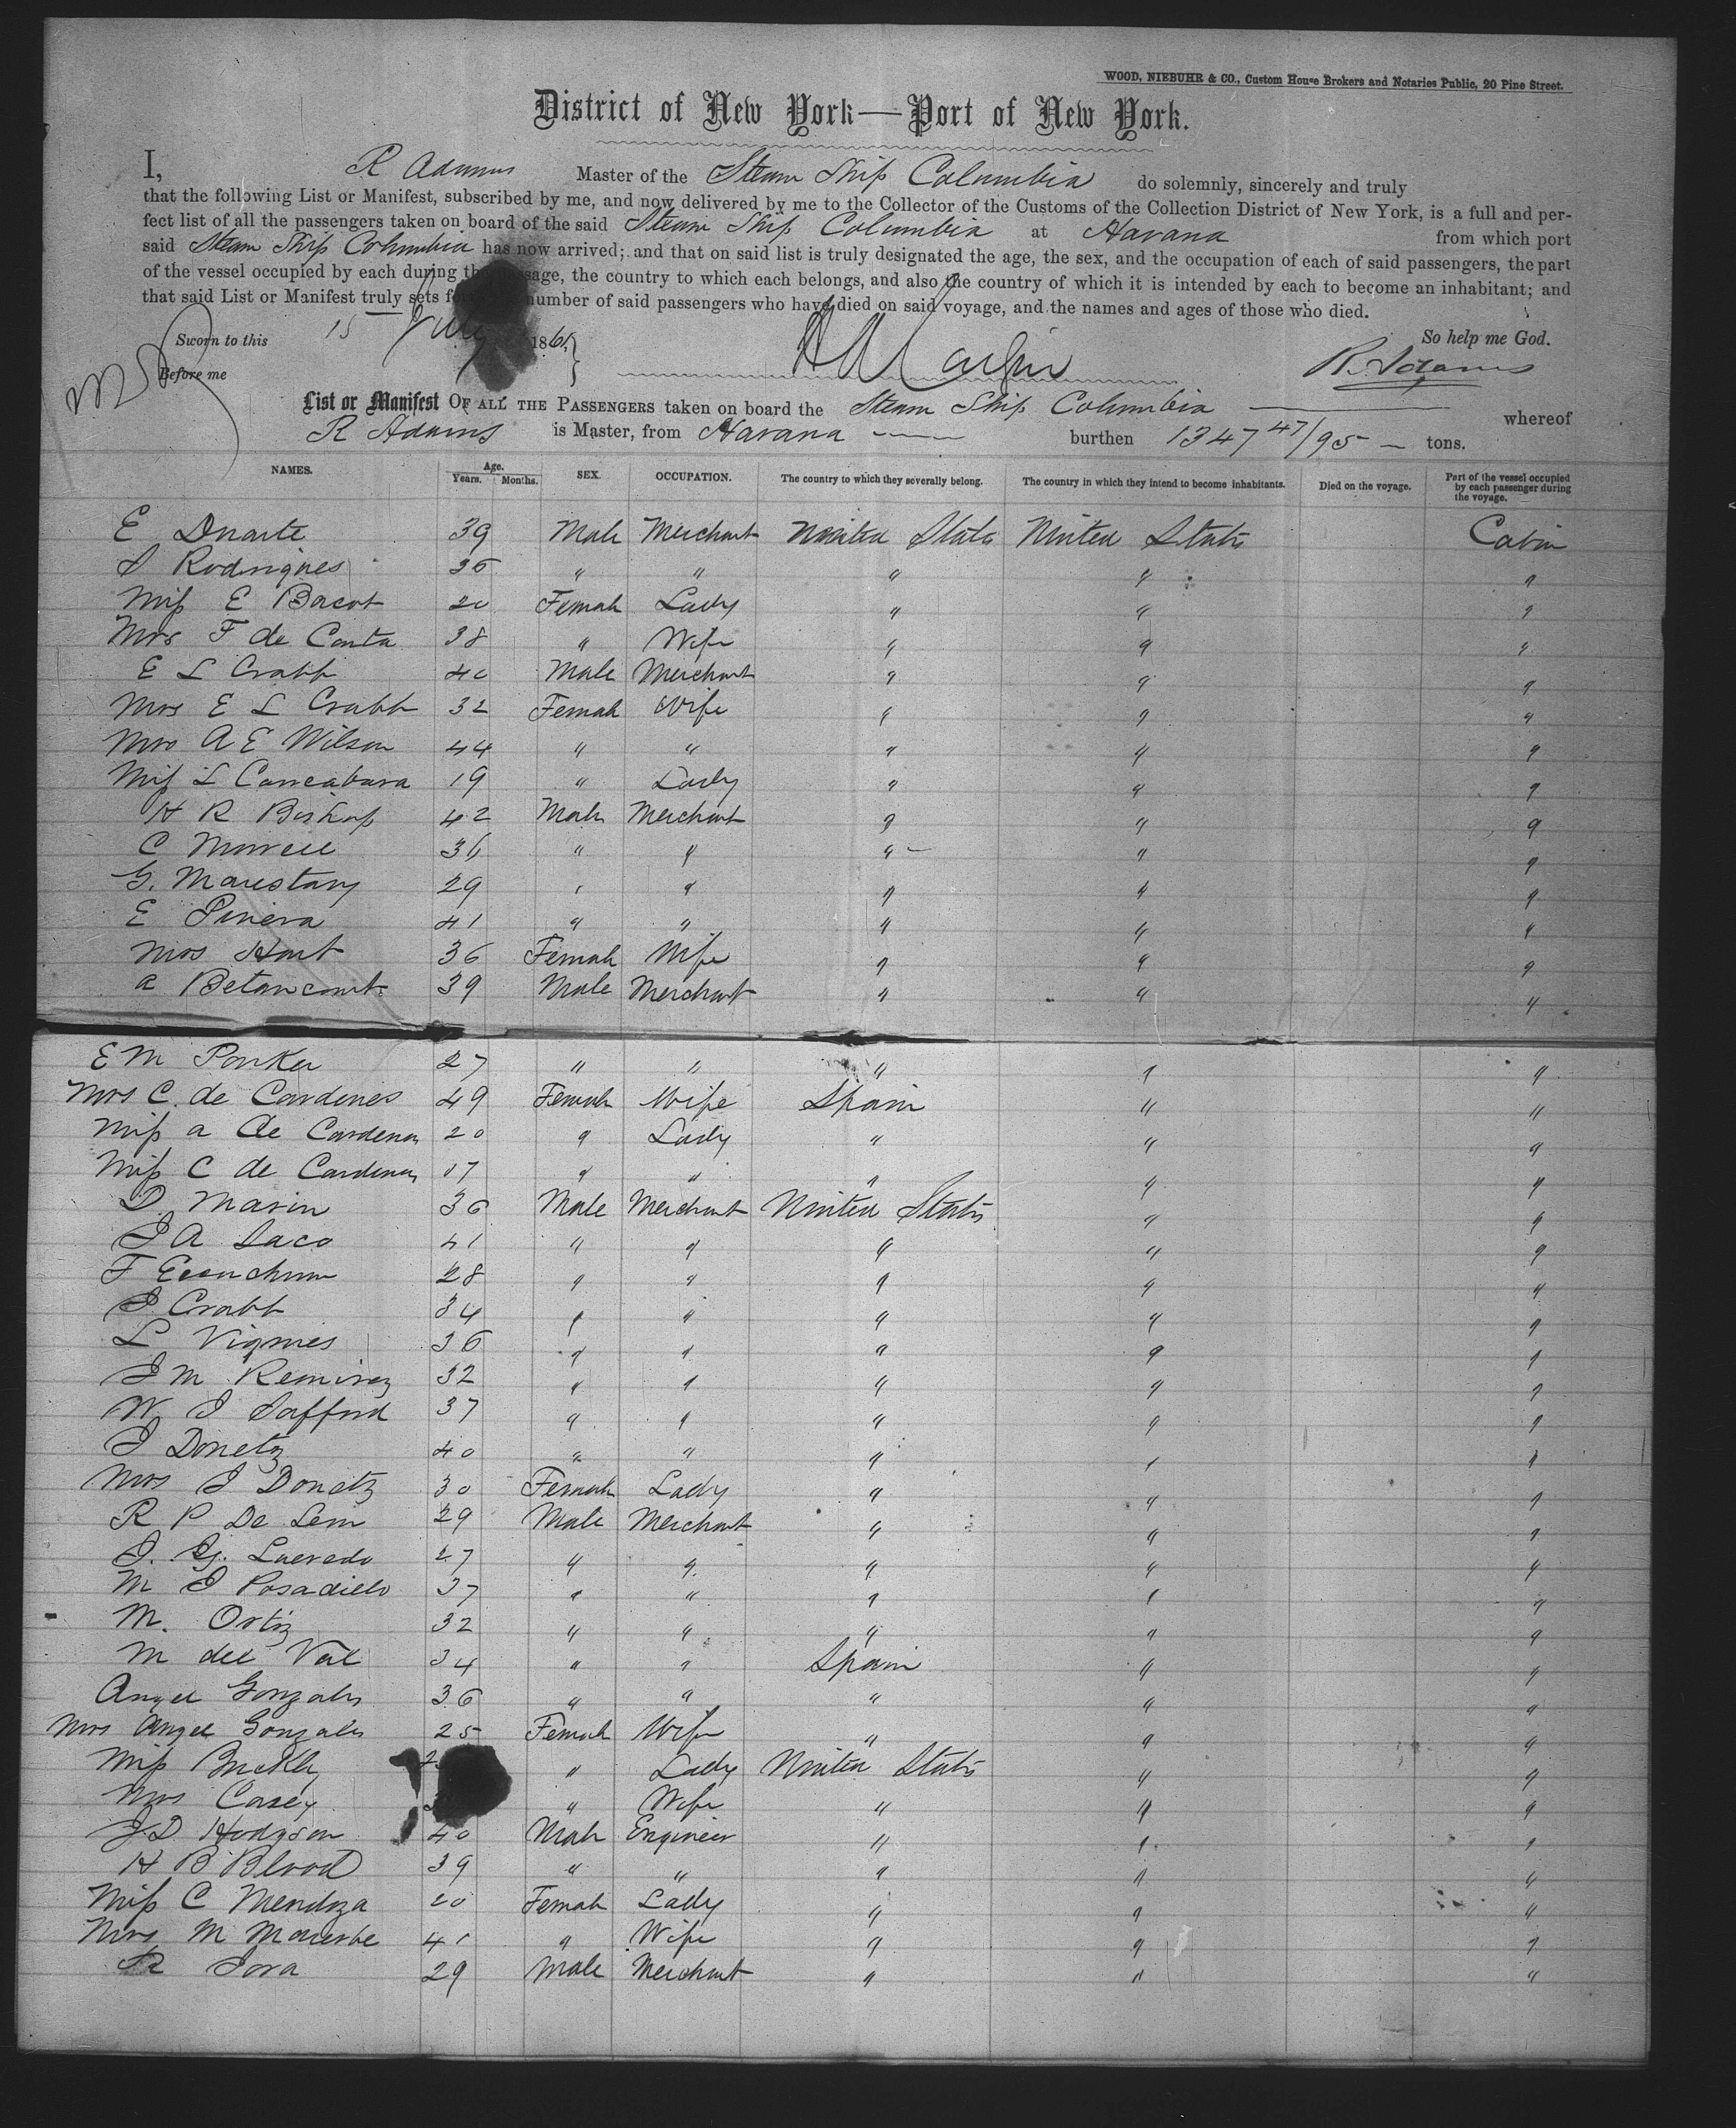 WOOD, NIEBUHR & CO., Custom House Brokers and Notaries Public, 20 Pine Street.
District of New York—Port of New York.
I, R Adams Master of the Steam Ship Columbia do solemnly, sincerely and truly
that the following List or Manifest, subscribed by me, and now delivered by me to the Collector of the Customs of the Collection District of New York, is a full and per-
fect list of all the passengers taken on board of the said Steam Ship Columbia at Havana from which port
said Steam Ship Columbia has now arrived; and that on said list is truly designated the age, the sex, and the occupation of each of said passengers, the part
of the vessel occupied by each during the passage, the country to which each belongs, and also the country of which it is intended by each to become an inhabitant; and
that said List or Manifest truly sets number of said passengers who have died on said voyage, and the names and ages of those who died.
Sworn to this 15 July 186 So help me God.
Before me R. Adams
List or Manifest OF ALL THE PASSENGERS taken on board the Steam Ship Columbia whereof
R Adams is Master, from Havana burthen 1347 47/95 tons.
NAMES. Age. Years. Months. SEX. OCCUPATION. The country to which they severally belong. The country in which they intend to become inhabitants. Died on the voyage. Part of the vessel occupied by each passenger during the voyage.
E Duarte 39 Male Merchant United States United States Cabin
Rodrigues 36 " " " " "
Miss E Bacot 20 Female Lady " " "
Mrs F de Conta 38 " Wife " " "
E L Crabb 40 Male Merchant " " "
Mrs E L Crabb 32 Female Wife " " "
Mrs A E Wilson 44 " " " " "
Miss L 19 " Lady " " "
H R Bishop 42 Male Merchant " " "
C Morrell 36 " " " " "
G. Marestany 29 " " " " "
E Pinera 41 " " " " "
Mrs Hart 36 Female Wife " " "
A Betancourt 39 Male Merchant " " "
E M Parker 27 " " " " "
Mrs C. de Cardenes 49 Female Wife Spain " "
Miss A de Cardenas 20 " Lady " " "
Miss C de Cardenas 17 " " " " "
D. Marin 36 Male Merchant United States " "
J A Saco 41 " " " " "
F 28 " " " " "
J Crabb 34 " " " " "
L Vignies 36 " " " " "
J M Remirez 32 " " " " "
W J Safford 37 " " " " "
J Donetz 40 " " " " "
Mrs J Donetz 30 Female Lady " " "
R P De Leon 29 Male Merchant " " "
J. G. 27 " " " " "
M J Posadillo 37 " " " " "
M. Ortiz 32 " " " " "
M del Val 34 " " Spain " "
Angel Gonzales 36 " " " " "
Mrs Angel Gonzales 25 Female Wife " " "
Miss Buckley " Lady United States " "
Mrs Casey " Wife " " "
J. D Hodgson 40 Male Engineer " " "
H B Blood 39 " " " " "
Miss C Mendoza 20 Female Lady " " "
Mrs M 41 " Wife " " "
29 Male Merchant " " "